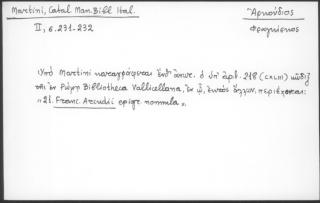 Martini, Catal. Man. Bibl. Ital.
II, σ. 231-232
Ἀρκούδιος
Φραγκίσκος
Ὑπὸ Martini καταγράφεται ὑπ' ἀριθ. 218 (CXLIII) κῶδιξ
τῆς ἐν Ρώμῃ Bibliotheca Vallicellana, ἐν ᾧ, ἐκτὸς ἄλλων, περιέχονται:
"21. Franc. Arcudii epigr. nonnulla".